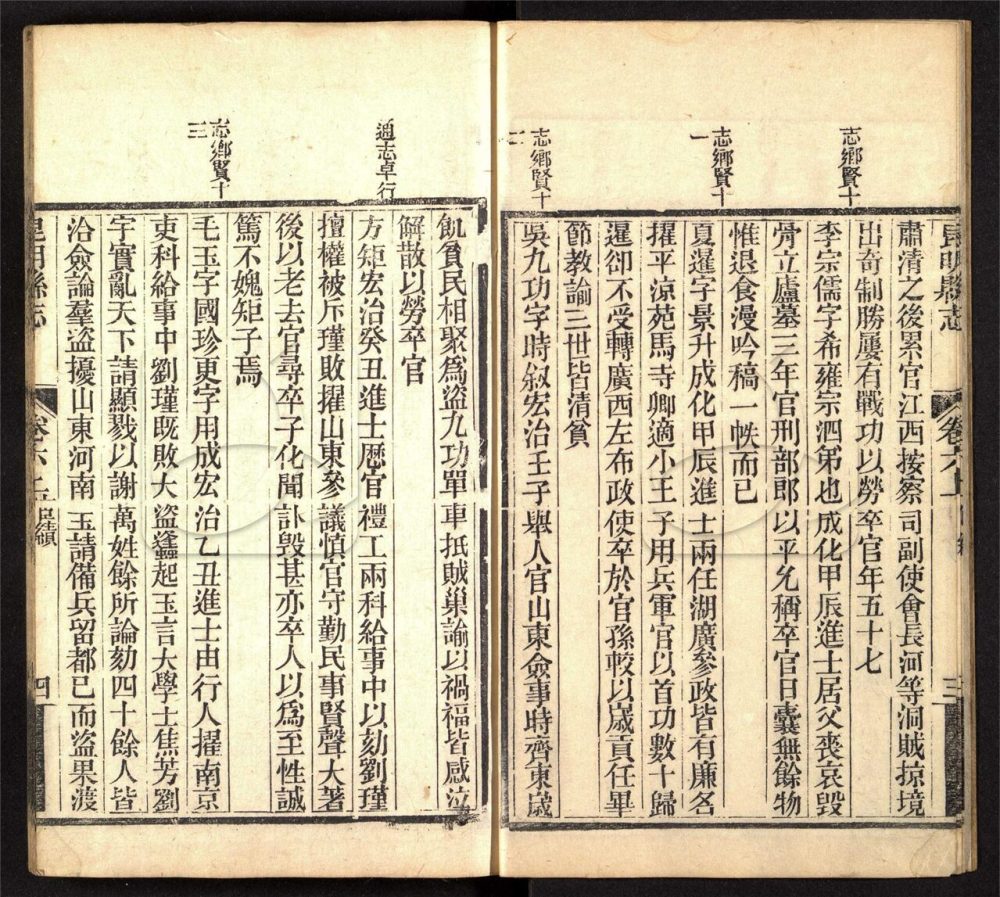 昆明縣志
卷六上
三
志鄉賢十
肅清之後累官江西按察司副使會長河等洞賊掠境
出奇制勝屢有戰功以勞卒官年五十七
李宗儒字希雍宗泗弟也成化甲辰進士居父喪哀毀
骨立廬墓三年官刑部郎以平允稱卒官日囊無餘物
惟退食漫吟稿一帙而已
志鄉賢十
一
夏暹字景升成化甲辰進士兩任湖廣參政皆有廉名
擢平涼苑馬寺卿適小王子用兵軍官以首功數十歸
暹卻不受轉廣西左布政使卒於官孫較以歲貢任畢
節教諭三世皆清貧
志鄉賢十
二
吳九功字時敍宏治壬子舉人官山東僉事時齊東歲
飢貧民相聚爲盜九功單車抵賊巢諭以禍福皆感泣
解散以勞卒官
通志卓行
方矩宏治癸丑進士歷官禮工兩科給事中以劾劉瑾
擅權被斥瑾敗擢山東參議愼官守勤民事賢聲大著
後以老去官尋卒子化聞訃毀甚亦卒人以爲至性誠
篤不媿矩子焉
志鄉賢十
三
毛玉字國珍更字用成宏治乙丑進士由行人擢南京
吏科給事中劉瑾既敗大盜蠭起玉言大學士焦芳劉
宇實亂天下請顯戮以謝萬姓餘所論劾四十餘人皆
洽僉論羣盜擾山東河南玉請備兵留都已而盜果渡
昆明縣志
卷六上
四